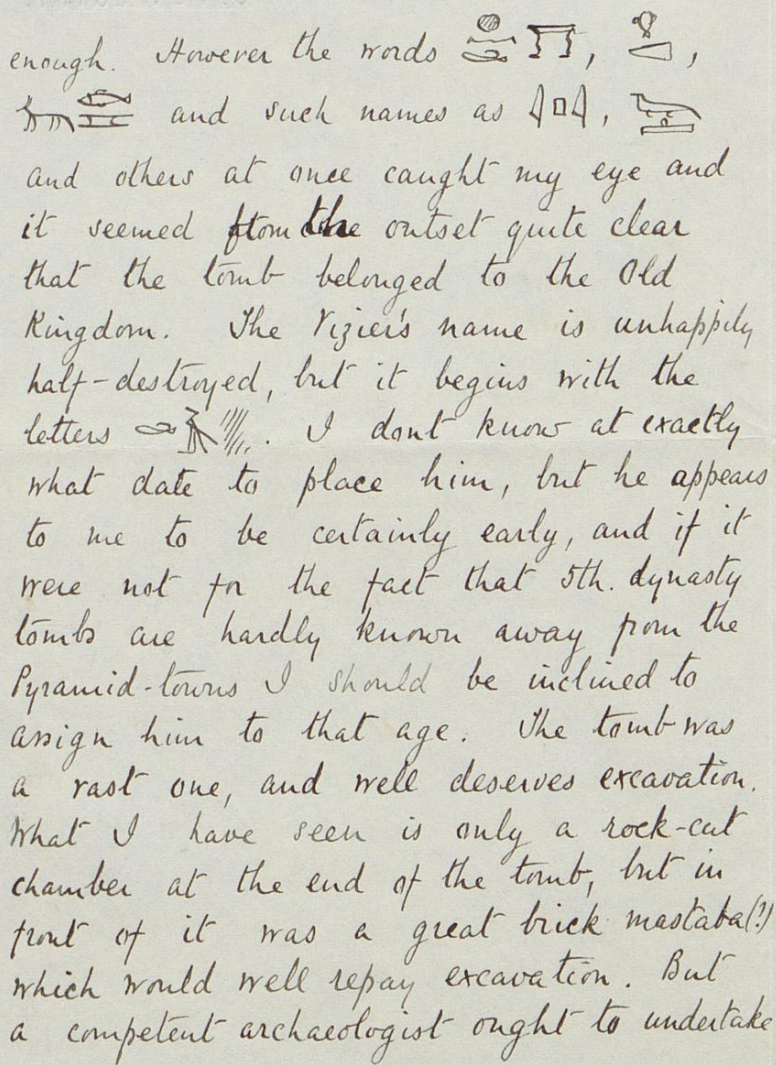 enough. However the words , ,
and such names as , 
and others at once caught my eye and
it seemed from the outset quite clear
that the tomb belonged to the Old
Kingdom. The Vizier's name is unhappily
half-destroyed, but it begins with the
letters . I don't know at exactly
what date to place him, but he appears
to me to be certainly early, and if it
were not for the fact that 5th. dynasty
tombs are hardly known away from the
Pyramid-towns I should be inclined to
assign him to that age. The tomb was
a vast one, and well deserves excavation.
What I have seen is only a rock-cut
chamber at the end of the tomb, but in
front of it was a great brick mastaba(?)
which would well repay excavation. But
a competent archaeologist ought to undertake